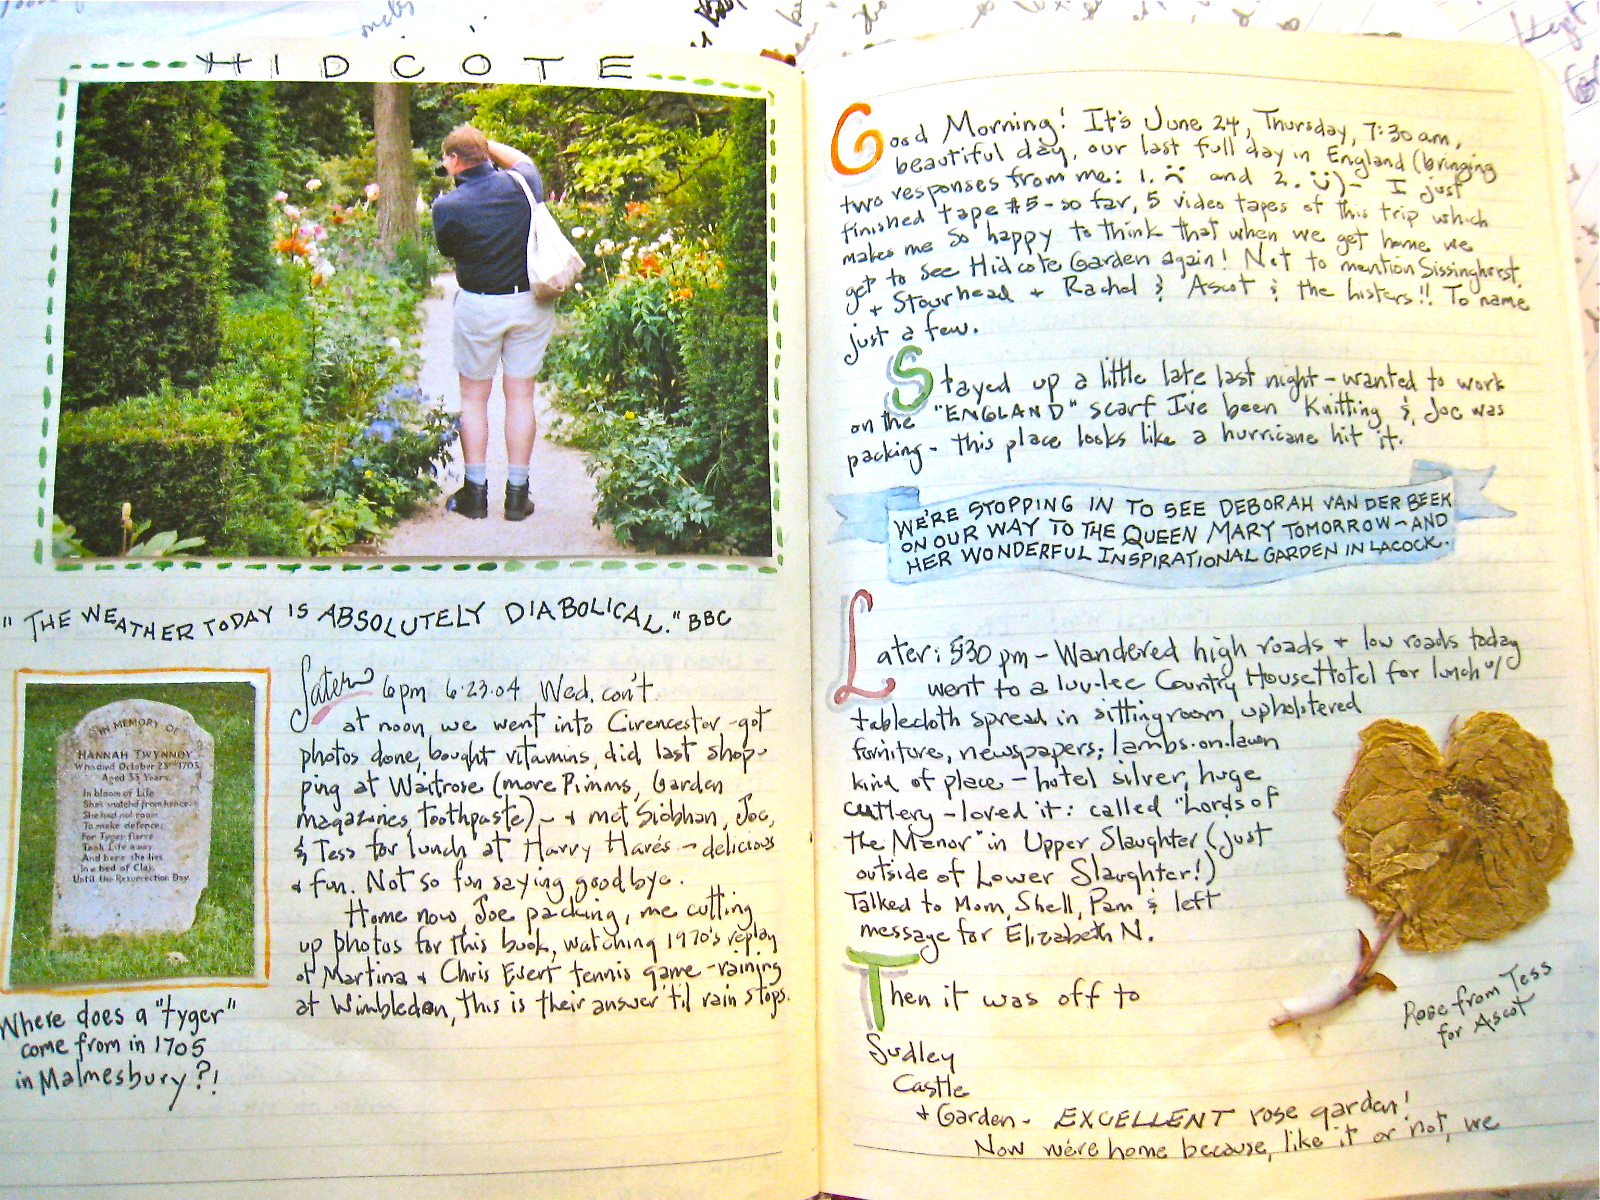 HIDCOTE
"THE WEATHER TODAY IS ABSOLUTELY DIABOLICAL." BBC
IN MEMORY OF
HANNAH TWYNNOY
Who died October 23rd 1703
Aged 33 Years.
In bloom of Life
She's snatchd from hence,
She had not room
To make defence;
For Tyger fierce
Took Life away
And here she lies
In a bed of Clay,
Until the Resurrection Day.
Where does a "tyger"
come from in 1705
in Malmesbury?!
Later 6pm 6.23.04 Wed. con't.
at noon we went into Cirencester - got
photos done, bought vitamins, did last shop-
ping at Waitrose (more Pimms, Garden
magazines toothpaste) - & met Siobhan, Joe,
& Tess for lunch at Harry Hare's - delicious
& fun. Not so fun saying goodbye.
Home now, Joe packing, me cutting
up photos for this book, watching 1970's replay
of Martina & Chris Evert tennis game - raining
at Wimbledon, this is their answer 'til rain stops.
Good Morning! It's June 24, Thursday, 7:30 am,
beautiful day, our last full day in England (bringing
two responses from me: 1. ☹ and 2. ☺) - I just
finished tape #5 - so far, 5 video tapes of this trip which
makes me so happy to think that when we get home we
get to see Hidcote Garden again! Not to mention Sissinghrst,
+ Stourhead + Rachel & Ascot & the Listers!! To name
just a few.
Stayed up a little late last night - wanted to work
on the "ENGLAND" scarf I've been Knitting &, Joe was
packing - this place looks like a hurricane hit it.
WE'RE STOPPING IN TO SEE DEBORAH VAN DER BEEK
ON OUR WAY TO THE QUEEN MARY TOMORROW - AND
HER WONDERFUL INSPIRATIONAL GARDEN IN LACOCK.
Later: 5:30 pm - Wandered high roads + low roads today
went to a luv-lee Country House Hotel for lunch w/
tablecloth spread in sittingroom, upholstered
furniture, newspapers; lambs-on-lawn
kind of place - hotel silver, huge
cuttlery - loved it: called "Lords of
the Manor" in Upper Slaughter (just
outside of Lower Slaughter!)
Talked to Mom, Shell, Pam & left
message for Elizabeth N.
Then it was off to
Sudley
Castle
+ Garden - EXCELLENT rose garden!
Now we're home because, like it or not, we
Rose from Tess
for Ascot